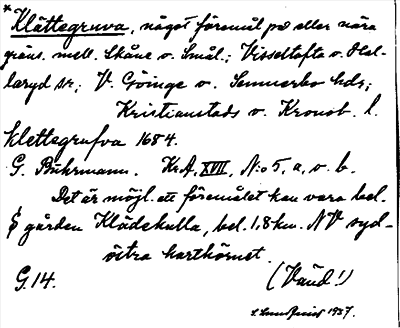 * Klättegruva, något föremål på eller nära
gräns. mell. Skåne o. Smål.; Visseltofta o. Hal-
laryd sr; V. Göinge o. Sunnerbo hdr;
Kristianstads o. Kronob. l.
Klettegrufva 1684.
G. Buhrmann. KrA, XVII, N:o 5, a, o. b.
Det är möjl. att föremålet kan vara bel.
å gården Klädekulla, bel. 1,8 km. NV syd-
östra karthörnet.
G. 14. (Vänd!)
1937.